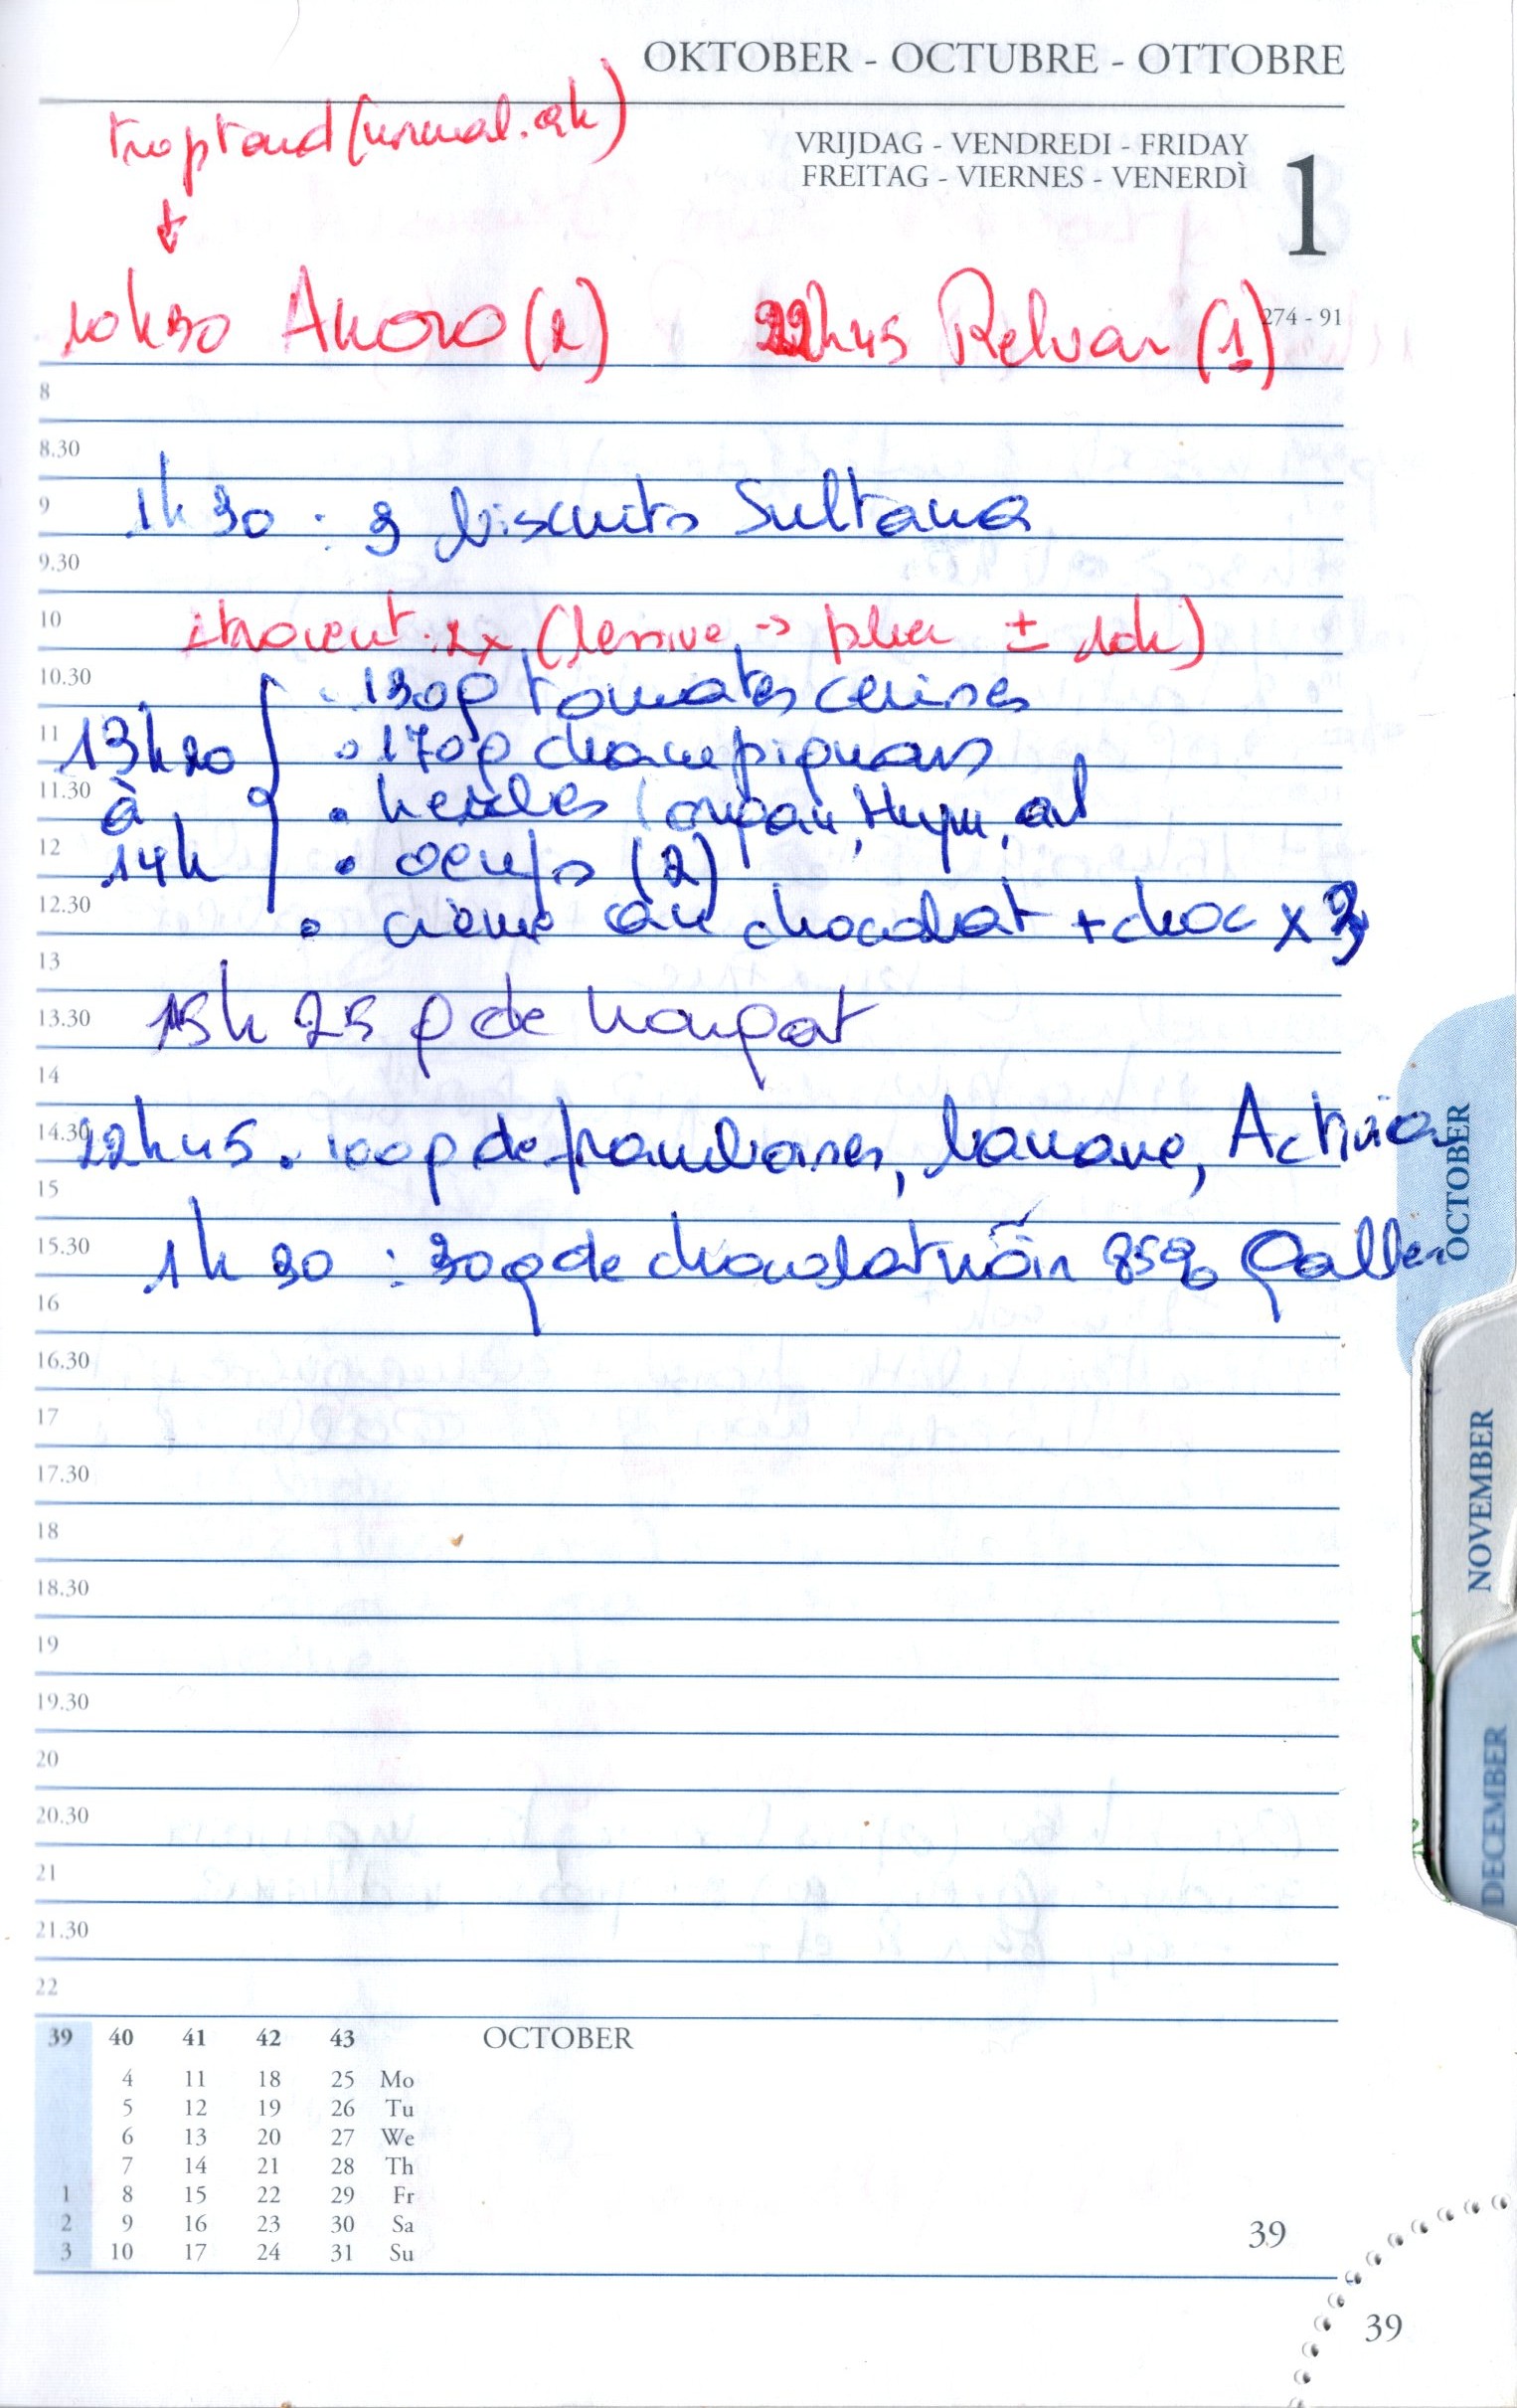 OKTOBER - OCTUBRE - OTTOBRE
trop tard (normal. 9h)
VRIJDAG - VENDREDI - FRIDAY
FREITAG - VIERNES - VENERDÌ
1
274 - 91
10h30 Akoro (2) 22h45 Relvar (1)
8
8.30
9 1h30 : 3 biscuits Sultana
9.30
10 Atrovent 2x (lessive -> plier ± 10h)
10.30 . 130g tomates cerises
11 13h20 . 170g champignons
11.30 à . herbes (origan, thym, ail
12 14h . oeufs (2)
12.30 . crème au chocolat + choc x 3
13
13.30 15h 25 g de nougat
14
14.30 22h45 . 100g de framboises, banane, Activia
15
15.30 1h30 : 30g de chocolat noir 85% Galler
16
16.30
17
17.30
18
18.30
19
19.30
20
20.30
21
21.30
22
39 40 41 42 43 OCTOBER
4 11 18 25 Mo
5 12 19 26 Tu
6 13 20 27 We
7 14 21 28 Th
1 8 15 22 29 Fr
2 9 16 23 30 Sa
3 10 17 24 31 Su
39
39
OCTOBER
NOVEMBER
DECEMBER